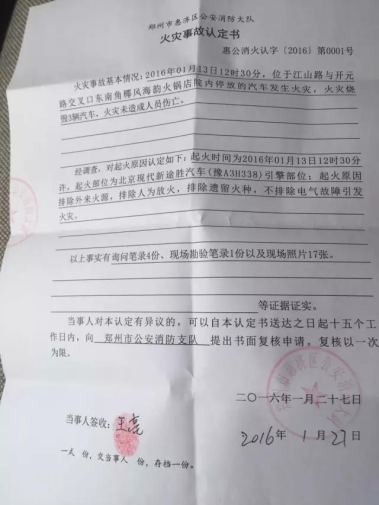 郑州市惠济区公安消防大队
火灾事故认定书
惠公消火认字〔2016〕第0001号
火灾事故基本情况:2016年01月13日12时30分,位于江山路与开元
路交叉口东南角椰风海韵火锅店院内停放的汽车发生火灾,火灾烧
毁3辆汽车,火灾未造成人员伤亡。
经调查,对起火原因认定如下:起火时间为2016年01月13日12时30分
许,起火部位为北京现代新途胜汽车(豫A3H338)引擎部位;起火原因
排除外来火源,排除人为放火,排除遗留火种,不排除电气故障引发
火灾。
以上事实有询问笔录4份、现场勘验笔录1份以及现场照片17张。
等证据证实。
当事人对本认定有异议的,可以自本认定书送达之日起十五个工
作日内,向 郑州市公安消防支队 提出书面复核申请。复核以一次
为限。
二〇一六年一月二十七日
当事人签收:
2016年1月27日
一式 份,交当事人 份,存档一份。